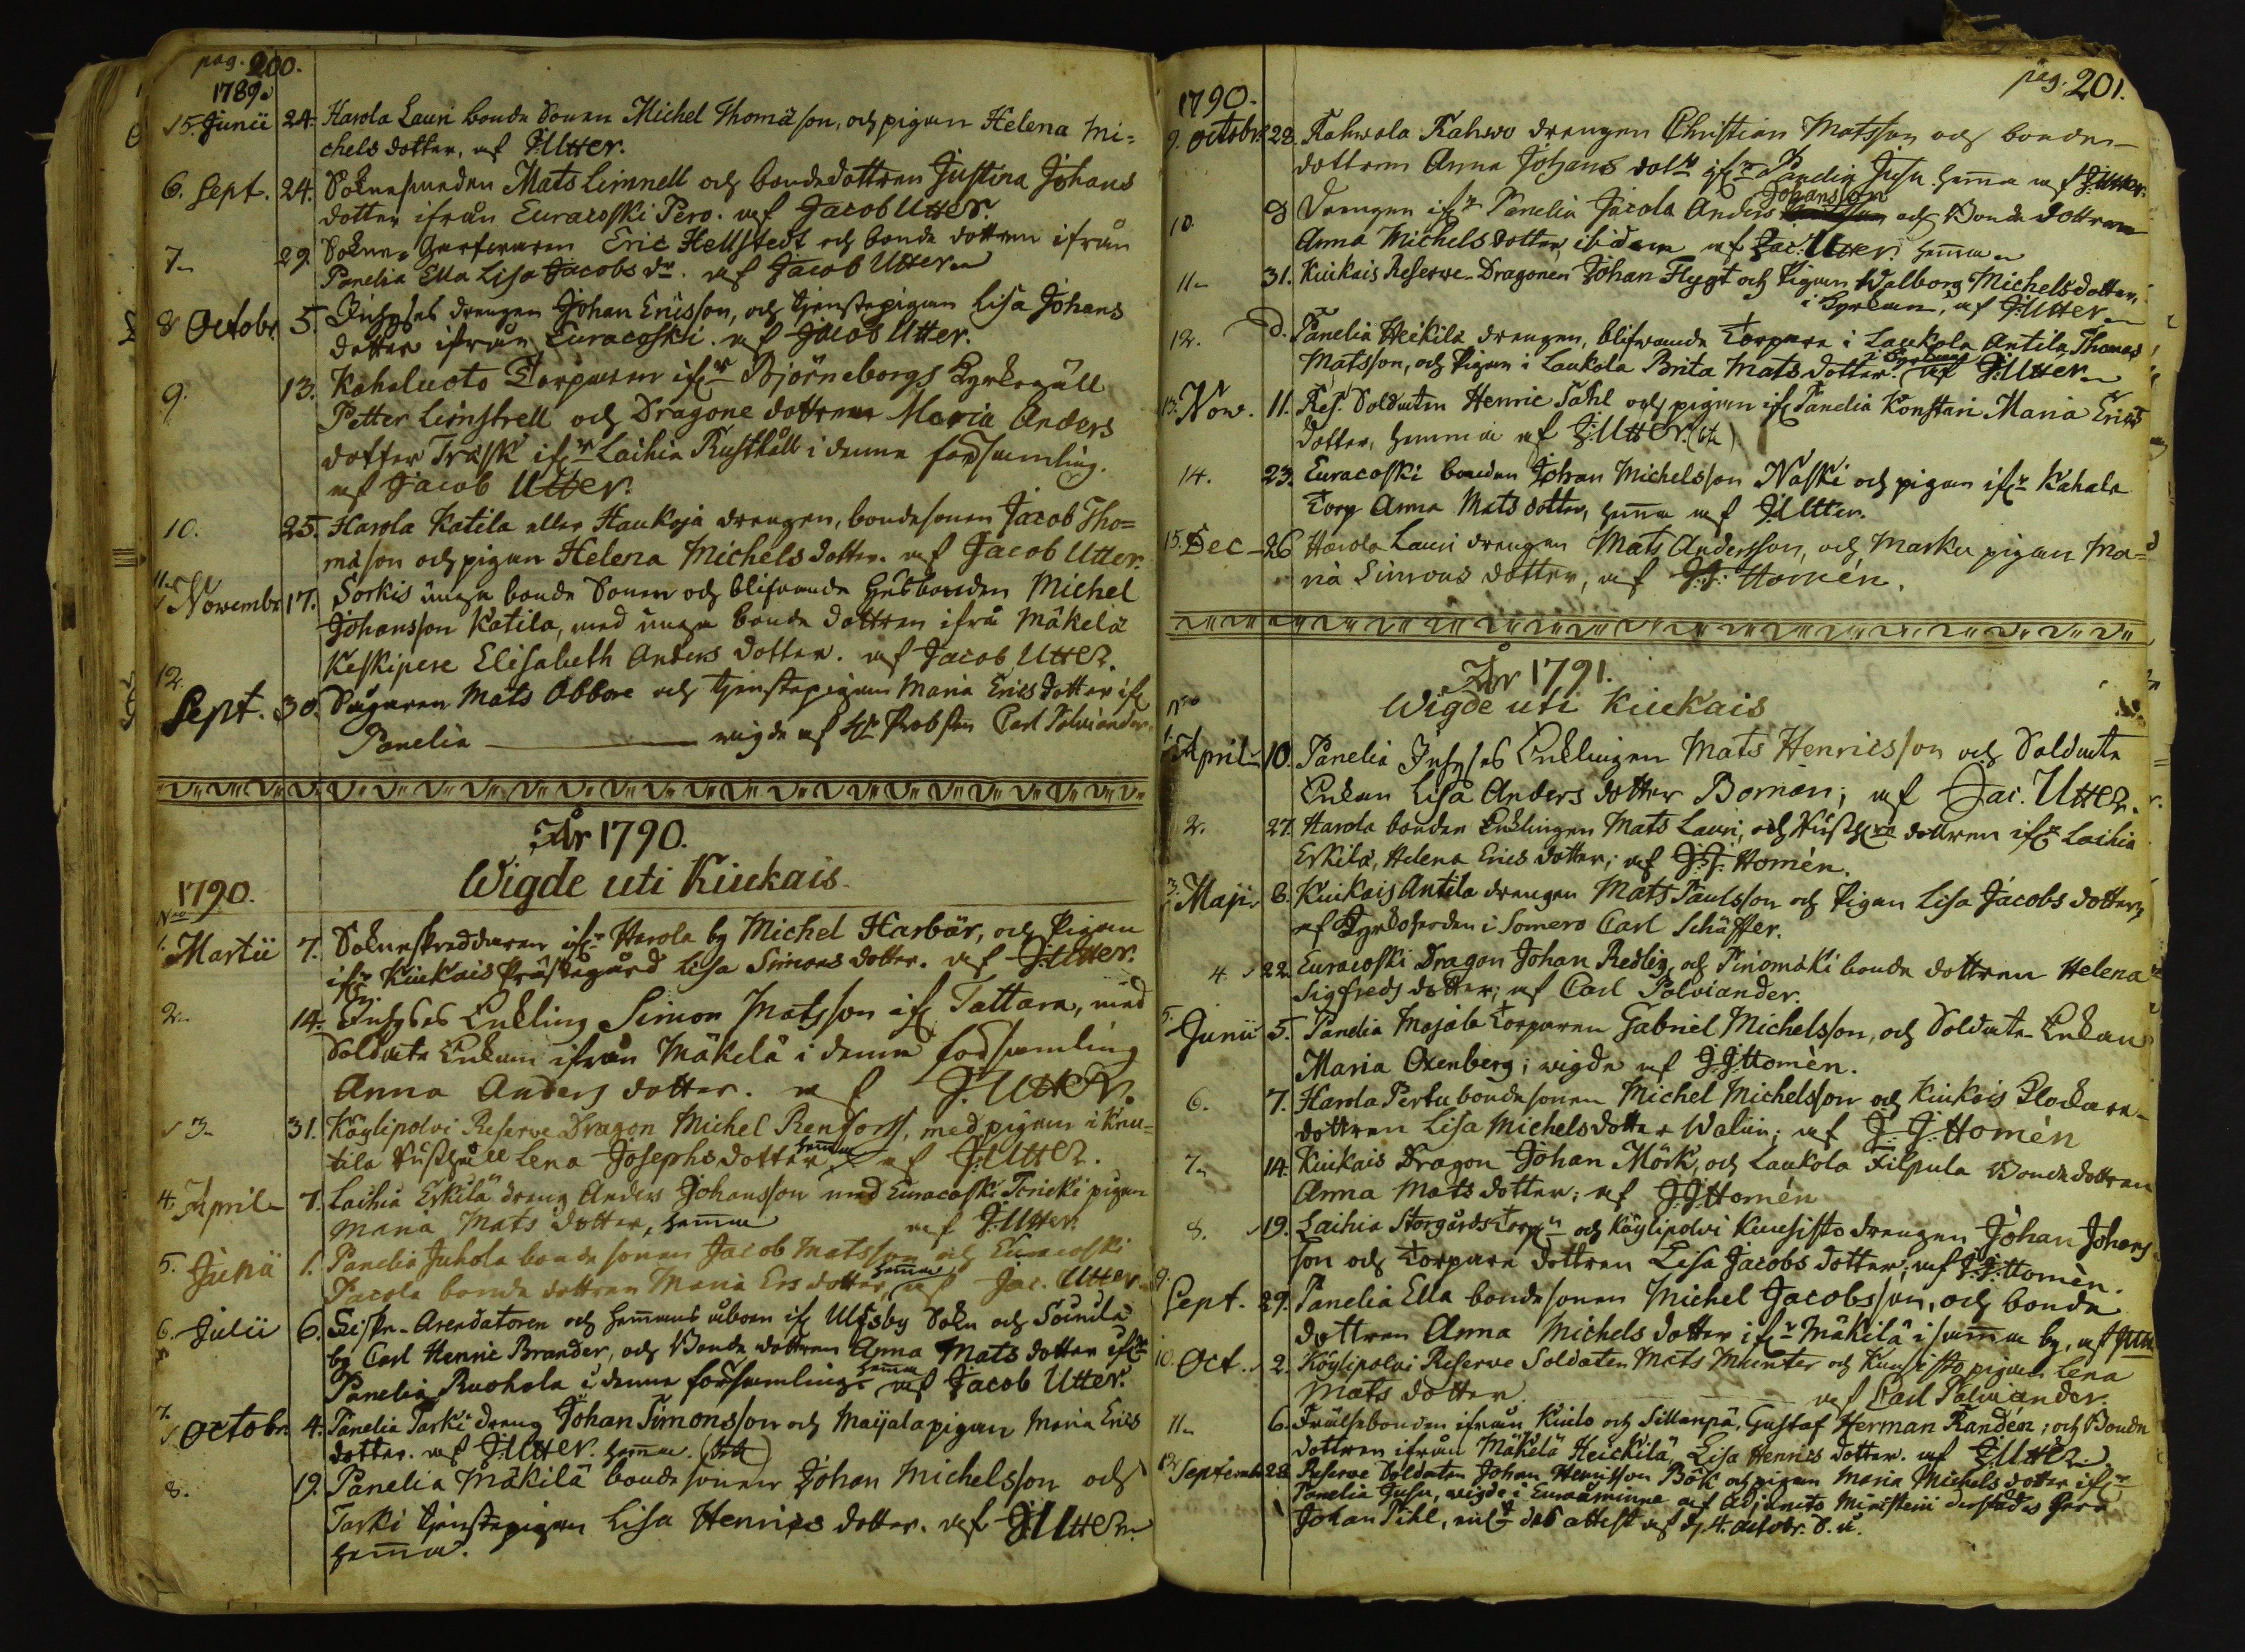 pag. 200.
1789.
5. Junii 24. Harola Lauri bonde Sonen Michel Thomasson, och pigan Helena Mi-
chels dotter, af J: Utter.
6. Sept. 24. Soknesmeden Mats Limnell och bondedottren Justina Johans
dotter ifrån Euracoski Pero. af Jacob Utter.
7. 29 Sokne garfwaren Eric Hellstedt och bonde dottren ifrån
Panelia Ella Lisa Jacobs dr. af Jacob Utter.
8 Octobr. 5. Inhyses drengen Johan Ericsson, och tjenstepigan Lisa Johans
dotter ifrån Euracoski. af Jacob Utter.
9. 13. Kahaluoto Torparen ifr. Björneborgs Kyrkogäll
Petter Limstrell och Dragone dottren Maria Anders
dotter Träsk ifr. Laihia Rusthåll i denna församling.
af Jacob Utter.
10. 25. Harola Katila eller Haukoja drengen, bondesonen Jacob Tho=
mason och pigan Helena Michels dotter. af Jacob Utter.
11. Novembr 17. Sorkis unga bonde Sonen och blifwande Husbonden Michel
Johansson Katila, med unga bonde dottren ifrå Mäkelä
Keskipere Elisabeth Anders dotter. af Jacob Utter.
12. Sept. 30. Sågaren Mats Obbore och tjenstepigan Maria Erics dotter ifr
Panelia wigde af Hr Probsten Carl Polviander.
År 1790.
Wigde uti Kiukais.
1790.
Nro
1. Martii 7. Sokneskreddaren ifr. Harola by Michel Harbär, och Pigan
ifr. Kiukais Prästegård Lisa Simons dotter. af J: Utter.
2. 14. Inhyses Enkling Simon Matsson ifr Tattara, med
Soldate Enkan ifrån Mäkelä i denna församling
Anna Anders dotter. af J. Utter.
3. 31. Köylipolvi Reserve Dragon Michel Renfors, med pigan i Knu-
tila Rusthåll Lena Josephs dotter, hemma af J: Utter.
4. April 7. Laihia Eskilä dreng Anders Johansson med Euracoski pigan
Maria Mats dotter, hemma af J: Utter.
5. Junii 1. Panelia Juhola bonde sonen Jacob Matsson och Euracoski
Pacola bonde dottren Maria Ers dotter, hemma af Jac. Utter.
6. Julii 6. Arendatoren och hemmans åboen ifr Ulfsby Sokn och Söinilä
by Carl Henric Brander, och Bonde dottren Anna Mats dotter ifr
Panelia Ruohola i denna församling. hemma af Jacob Utter.
7. Octobr. 4. Panelia Tarki dreng Johan Simonsson och Maijala pigan Maria Erics
dotter. af J: Utter. hemma.
8. 19. Panelia Mäkilä bonde sonen Johan Michelsson och
Tarki tjenstepigan Lisa Henrics dotter. af J: Utter
hemma.
pag. 201.
1790.
9. octobr. 28. Kahwola Kahwo drengen Christian Matsson och bonde-
dottren Anna Johans dotr ifr. Panelia Jusu. hemma af J: Utter.
10 Drengen ifr. Panelia Jacola Anders Johansson och Bonde dottren
Anna Michels dotter, ibidem af Jac: Utter. hemma
11. 31. Kiukais Reserve-Dragonen Johan Flygt och Pigan Walborg Michels dotter,
i Kyrkan, af J: Utter.
12. d. Panelia Heikilä drengen, blifwande Torpare i Laukola Antila Thomas
Matsson, och Pigan i Laukola Brita Mats dotter. i Kyrkan af J: Utter.
13. Nov. 11. Res. Soldaten Henric Tahl och pigan ifr Panelia Konstari Maria Erics
dotter, hemma af J: Utter.
14. 23. Euracoski bonden Johan Michelsson Naski och pigan ifr. Kahala
Torp Anna Mats dotter, hemma af J: Utter.
15. Dec 26 Harola Lauri drengen Mats Andersson, och Marku pigan Ma=
ria Simons dotter, af J. J: Homén.
År 1791.
Wigde uti Kiukais
Nro
1. April 10. Panelia Inhyses Enklingen Mats Henricsson och Soldate
Enkan Lisa Anders dotter Boman; af Jac. Utter.
2. 27. Harola bonden Enklingen Mats Lauri, och dottren ifr Laihia
Eskilä, Helena Erics dotter; af J. J: Homén.
3. Maji 6. Kiukais Antila drengen Mats Paulsson och Pigan Lisa Jacobs dotter,
af Kyrkoherden i Somero Carl Schäffer.
4. 22 Euracoski Dragon Johan Redlig, och Pinomäki bonde dottren Helena
Sigfreds dotter; af Carl Polviander.
5. Junii 5. Panelia Majala Torparen Gabriel Michelsson, och Soldate Enkan
Maria Oxenberg; wigde af J. J Homèn.
6. 7. Harola Pertu bondesonen Michel Michelsson och Kiukais Klockare-
dottren Lisa Michelsdotter Walin; af J. J: Homèn
7. 14. Kiukais Dragon Johan Mörk, och Laukola Filpula Bonde dottren
Anna Mats dotter; af J. J Homén
8. 19. Laihia Storgårds Torp och Köylipolvi Kuusisto drengen Johan Johans
son och Torpare dottren Lisa Jacobs dotter; af J. J: Homèn.
9. Sept. 29. Panelia Ella bondesonen Michel Jacobsson, och bonde
dottren Anna Michels dotter ifr. Mäkilä i samma by, af
10. Oct. 2. Köylipolvi Reserve Soldaten Mats Munter och Kuusisto pigan Lena
Mats dotter. af Carl Polviander.
11. 6. Frälsebonden ifrån Kiulo och Sillanpä, Gustaf Herman Randén; och Bonde
dottren ifrån Mäkelä Heickilä Lisa Henrics dotter. af J: Utter.
12. Septembr 28. Reserve Soldaten Johan Henricsson Bök och pigan Maria Michels dotter ifr
Panelia Jusu, wigde i Euraåminne af Adjuncto Ministerii derstädes Herr
Johan Pihl, enl. des attest af d. 4. octobr. s. å.